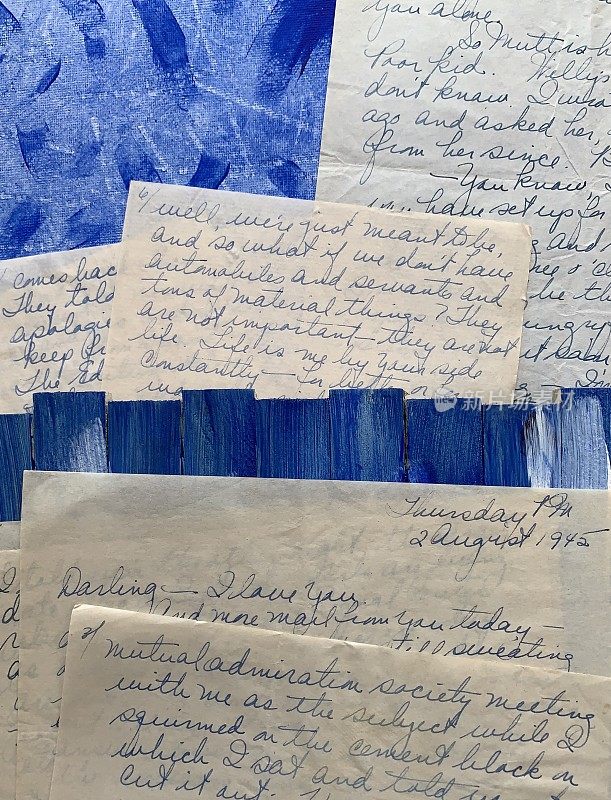 you alone.
So Mutt is h
Poor kid. Willy
don't know. I wro
ago and asked her,
from her since.
— You know,
have set up for
and
be th
6/ well, we're just meant to be,
and so what if we don't have
automobiles and servants and
tons of material things? They
are not important — they are not
life. Life is me by your side
constantly — for better or
comes bac
They told
apologie
keep
The Ed
Thursday PM
2 August 1945
Darling — I love you.
And more mail from you today —
still sweating
2/ mutual admiration society meeting
with me as the subject while I
squirmed on the cement block on
which I sat and told
cut it out.
iStock